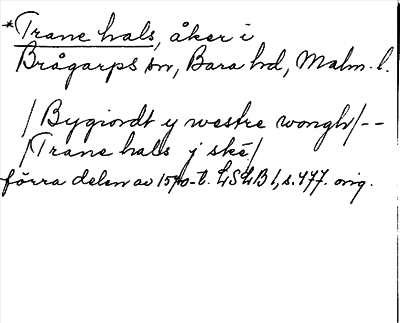 *Trane hals, åker i
Brågarps sn, Bara hd, Malm. l.
/Bygiordt y westre wongh/--
/Trane hals j ské/
förra delen av 1570-t. LSLB 1, s. 477. orig.